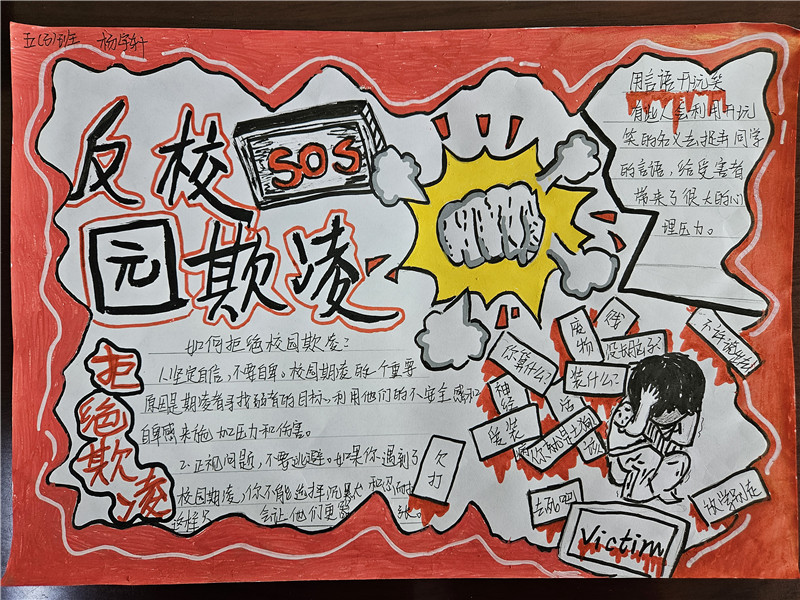 五(6)班 杨学轩
反校
SOS
园欺凌
用言语开玩笑
有些人会利用开玩
笑的名义去抨击同学
的言语,给受害者
带来了很大的心
理压力。
拒绝欺凌
如何拒绝校园欺凌?
1.坚定自信,不要自卑。校园期凌的一个重要
原因是期凌者寻找弱者的目标,利用他们的不安全感和
自卑感来施加压力和伤害。
2.正视问题,不要逃避。如果你遇到了
校园期凌,你不能选择沉默
会让他们更
欠打
你算什么?
废物
没长脑子
装什么?
神经
活该
去死吧
放学别走
Victim